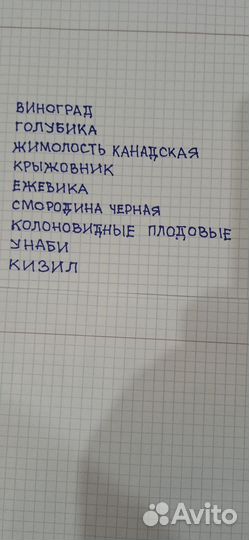 ВИНОГРАД
ГОЛУБИКА
ЖИМОЛОСТЬ КАНАДСКАЯ
КРЫЖОВНИК
ЕЖЕВИКА
СМОРОДИНА ЧЕРНАЯ
КОЛОНОВИДНЫЕ ПЛОДОВЫЕ
УНАБИ
КИЗИЛ
Avito